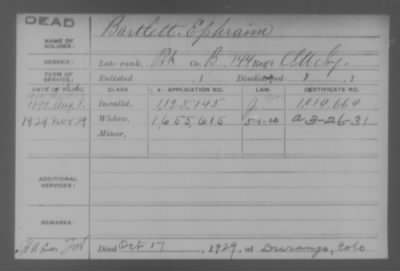 DEAD
NAME OF SOLDIER:
Bartlett, Ephraim
SERVICE:
Late rank, Pvt Co. B, 144 Reg't
TERM OF SERVICE:
Enlisted , 1 Discharged , 1
DATE OF FILING. CLASS APPLICATION NO. LAW. CERTIFICATE NO.
1892 Aug. 1. Invalid, 1,125,145 1,019,664
1929 Nov 19 Widow, 1,655,615 5-1-20 a 3-26-31
Minor,
ADDITIONAL SERVICES:
REMARKS:
Died Oct 17, 1929, at Durango, Colo